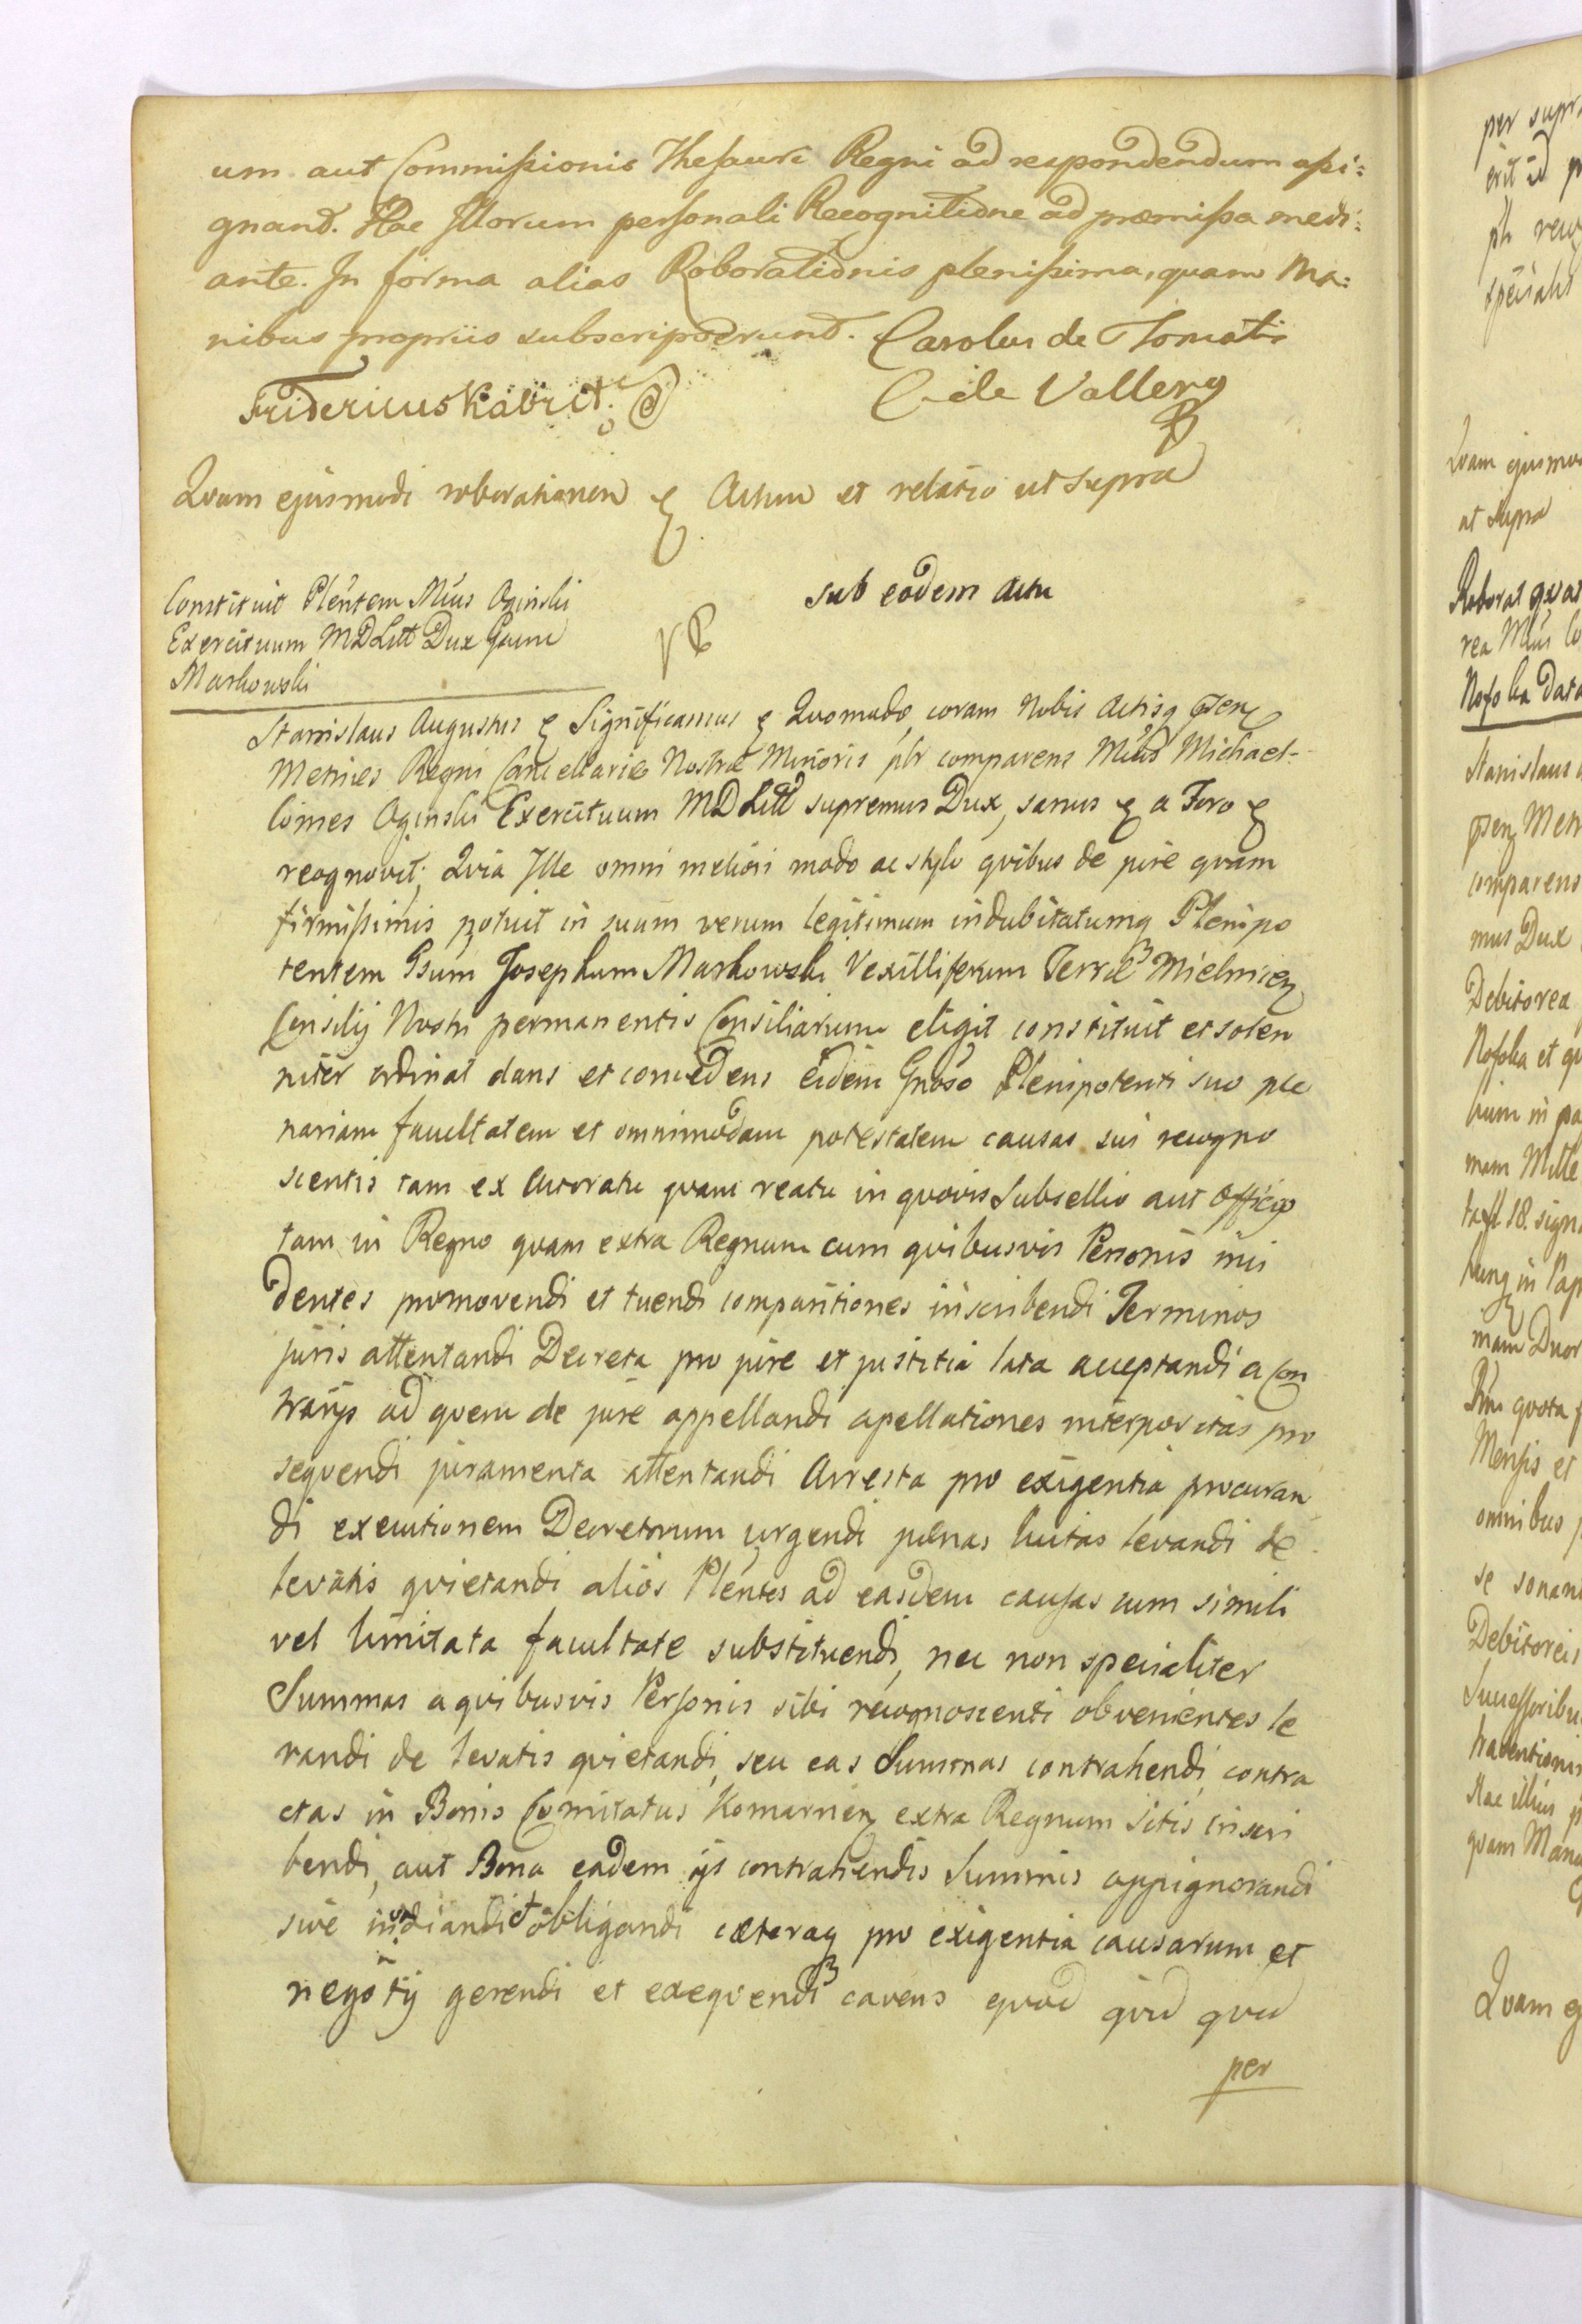 um aut Commissionis Thesauri Regni ad respondendum assi:
gnand. Hac Illorum personali Recognitione ad præmissa medi:
ante. In forma alias Roborationis plenissima, quam Ma:
nibus propriis subscripserunt. Carolus de Tomatis
Fridericus Kabrit. C de Vallery
Qvam ejusmodi roborationem & Actum et relatio ut supra
Constituit Plentem Mius Oginski
Exercituum MDLitt Dux Gsum
Markowski
sub eodem Actu
Stanislaus Augustus & Significamus & Qvomodo, coram Nobis Actisq psen
Metrices Regni Cancellariæ Nostræ Minoris plr comparens Mius Michael
Comes Oginski Exercituum MDLitt supremus Dux, sanus & a Foro &
recognovit; Qvia Ille omni meliori modo ac stylo qvibus de jure qvam
firmissimis potuit in suum verum legitimum indubitatumq Plenipo
tentem Gsum Josephum Markowski Vexilliferum Terræ Mielnicen
Consilij Nostri permanentis Consiliarium eligit constituit et solen
niter ordinat dans et concedens eidem Gnoso Plenipotenti suo ple
nariam facultatem et omnimodam potestatem causas sui recogno
scentis tam ex Actoratu qvam reatu in qvovis Subsellio aut Officio
tam in Regno qvam extra Regnum cum qvibusvis Personis inci
dentes promovendi et tuendi comparitiones inscribendi Terminos
juris attentandi Decreta pro jure et justitia lata acceptandi a Con
trarijs ad qvem de jure appellandi apellationes interpositas pro
seqvendi juramenta attentandi Arresta pro exigentia procuran
di executionem Decretorum urgendi pœnas luitas levandi de
levatis qvietandi alios Plentes ad easdem causas cum simili
vel limitata facultate substituendi, nec non specialiter
Summas a qvibusvis Personis sibi recognoscenti obvenientes le
vandi de levatis qvietandi, seu eas Summas contrahendi, contra
ctas in Bonis Comitatus Komarnien extra Regnum sitis, inscri
bendi, aut Bona eadem ijs contrahendis Summis appignorandi
sive et obligandi cæteraq pro exigentia causarum et
negotij gerendi et exeqvendi cavens qvod qvid qvid
per
per supr
erit id p
plr recog
specialit
Qvam ejusmo
ut supra
Roborat qvas
rea Mius Co
data
Stanislaus
psen Metr
comparens
mus Dux
Debitorea
et qv
mam Mille
18. sign
in Pap
mam Duor
qvota
Mensis et
omnibus
se sonan
Debitoreis
Successoribu
Hac illius p
qvam Manu
Qvam e